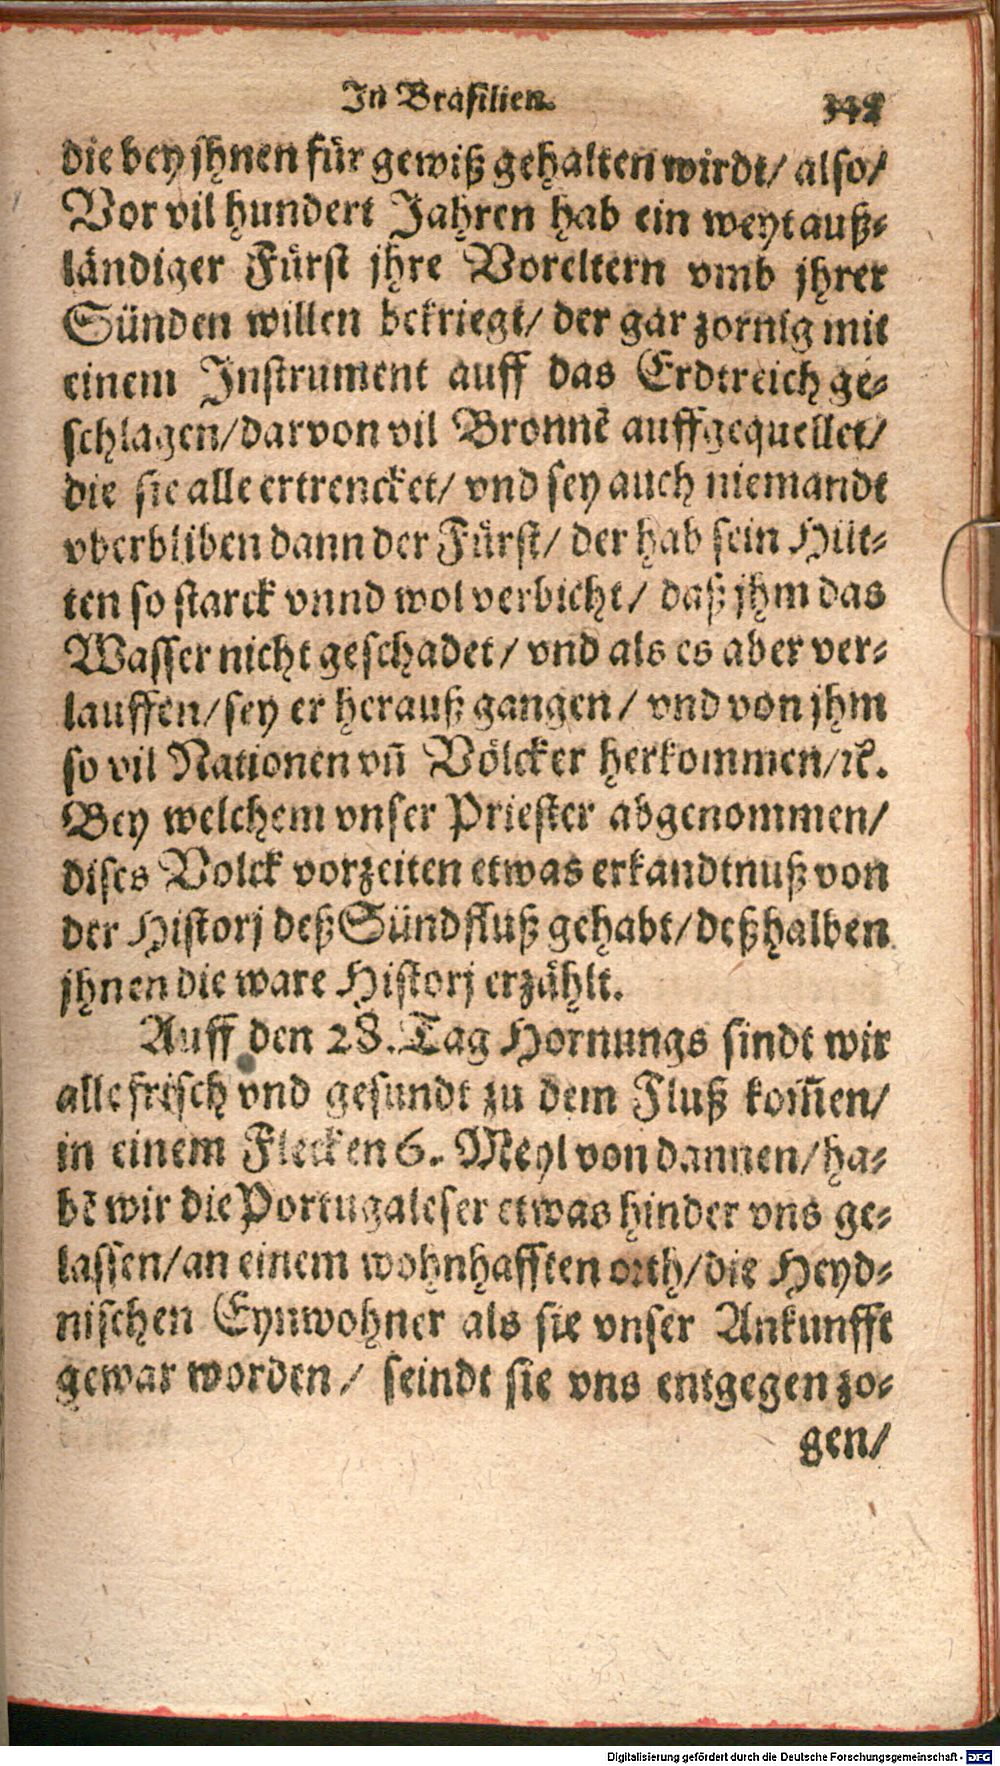 In Brasilien.
die bey jhnen für gewiß gehalten wirdt/ also/
Vor vil hundert Jahren hab ein weyt auß-
ländiger Fürst jhre Voreltern vmb jhrer
Sünden willen bekriegt/ der gar zornig mit
einem Instrument auff das Erdtreich ge-
schlagen/darvon vil Bronnē auffgequellet/
die sie alle ertrencket/ vnd sey auch niemandt
vberbliben dann der Fürst/ der hab sein Hüt-
ten so starck vnnd wol verbicht/ daß jhm das
Wasser nicht geschadet/ vnd als es aber ver-
lauffen/sey er herauß gangen/ vnd von jhm
so vil Nationen vn̄ Völcker herkommen/ꝛc.
Bey welchem vnser Priester abgenommen/
dises Volck vorzeiten etwas erkandtnuß von
der Historj deß Sündfluß gehabt/deßhalben
jhnen die ware Historj erzählt.
Auff den 28. Tag Hornungs sindt wir
alle frisch vnd gesundt zu dem Fluß kom̄en/
in einem Flecken 6. Meyl von dannen/ha-
bē wir die Portugaleser etwas hinder vns ge-
lassen/an einem wohnhafften orth/die Heyd-
nischen Eynwohner als sie vnser Ankunfft
gewar worden/ seindt sie vns entgegen zo-
gen/
Digitalisierung gefördert durch die Deutsche Forschungsgemeinschaft - DFG